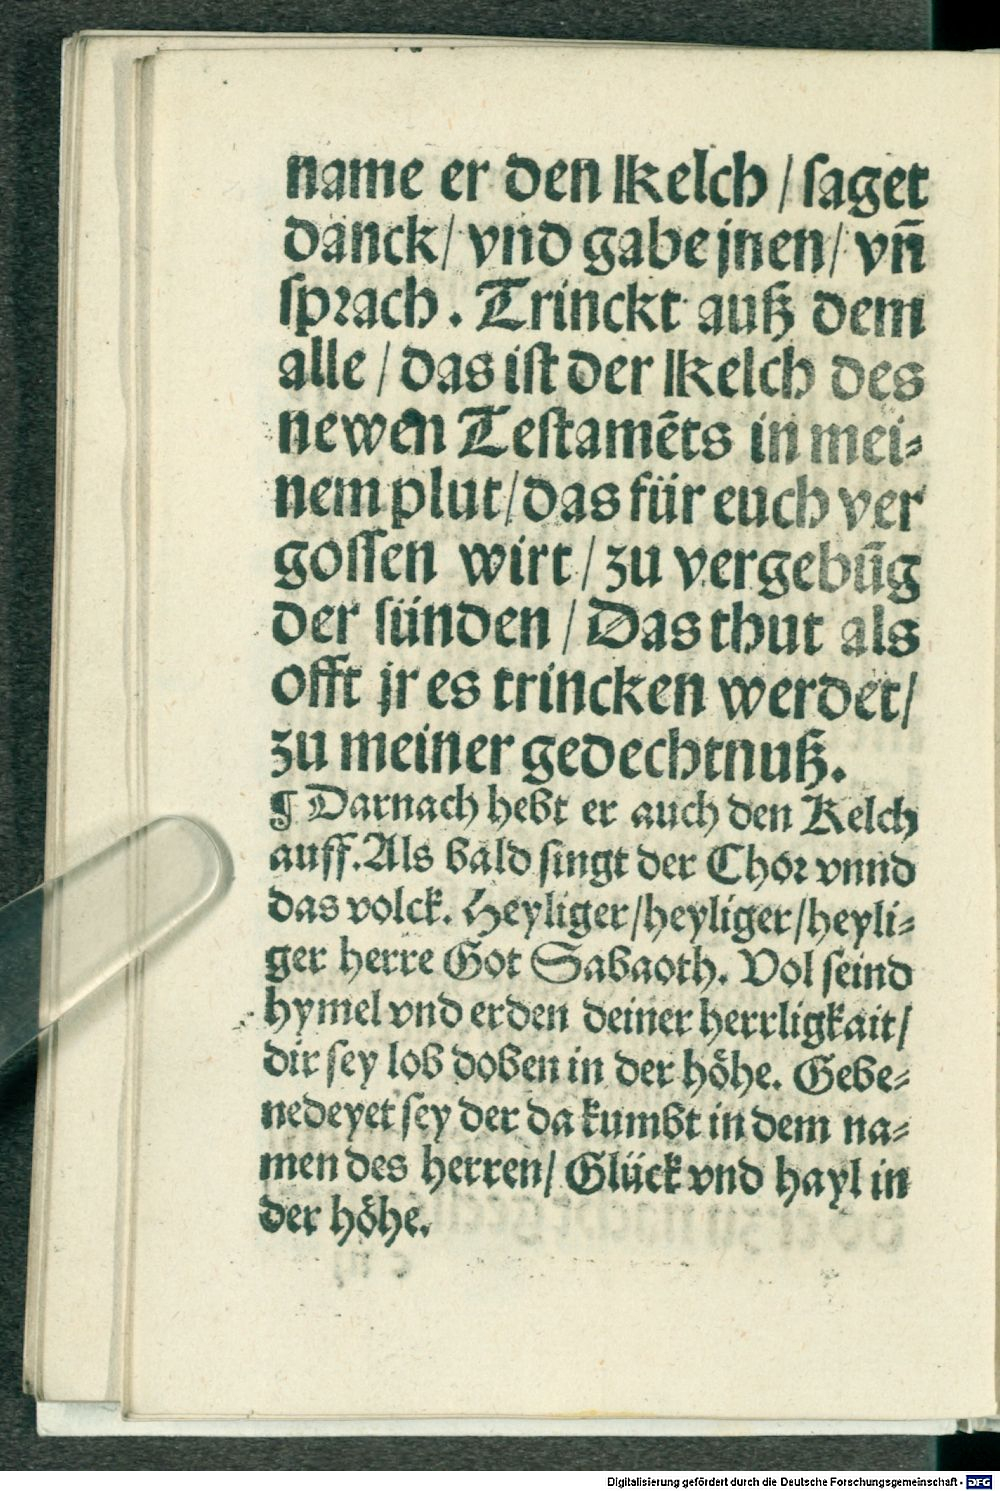 name er den Kelch / saget
danck / vnd gabe jnen / vn̄
sprach. Trinckt auß dem
alle / das ist der Kelch des
newen Testamēts in mei⸗
nem plut / das für euch ver
gossen wirt / zu vergebūg
der sünden / Das thut als
offt jr es trincken werdet /
zu meiner gedechtnuß.
¶ Darnach hebt er auch den Kelch
auff. Als bald singt der Chor vnnd
das volck. Heyliger / heyliger / heyli⸗
ger herre Got Sabaoth. Vol seind
hymel vnd erden deiner herrligkait /
dir sey lob doben in der höhe. Gebe⸗
nedeyet sey der da kumbt in dem na⸗
men des herren / Glück vnd hayl in
der höhe.
Digitalisierung gefördert durch die Deutsche Forschungsgemeinschaft - DFG